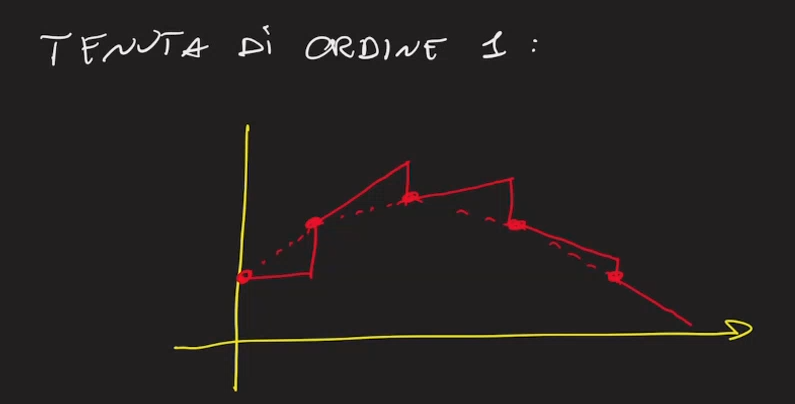 TENUTA DI ORDINE 1 :